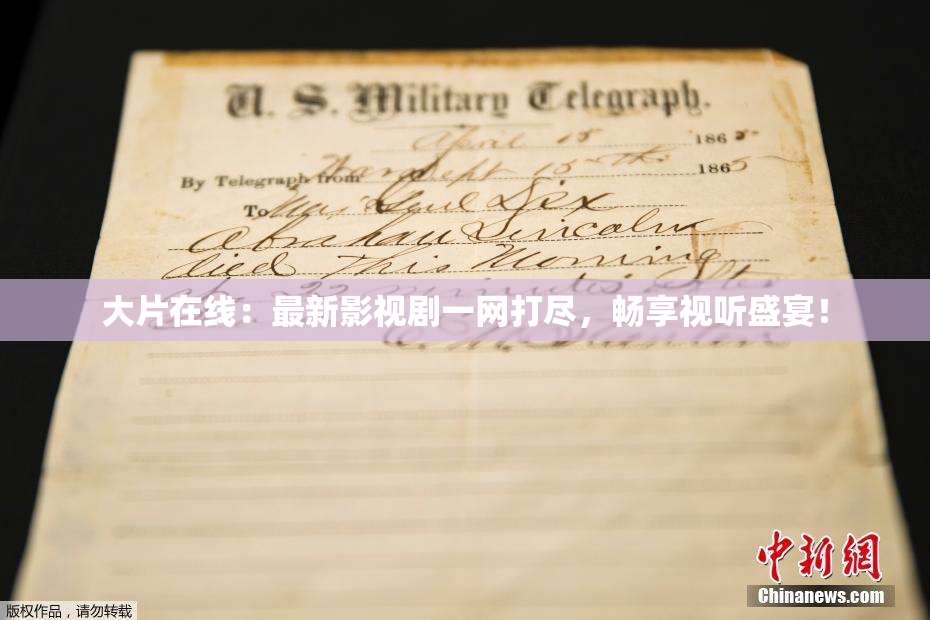 U. S. Military Telegraph.
April 15 1865
By Telegraph from War Dept 15th 1865
To Maj Genl Dix
Abraham Lincoln
died this Morning
22 minutes after
大片在线：最新影视剧一网打尽，畅享视听盛宴！
E. M. Stanton
中新网
Chinanews.com
版权作品，请勿转载